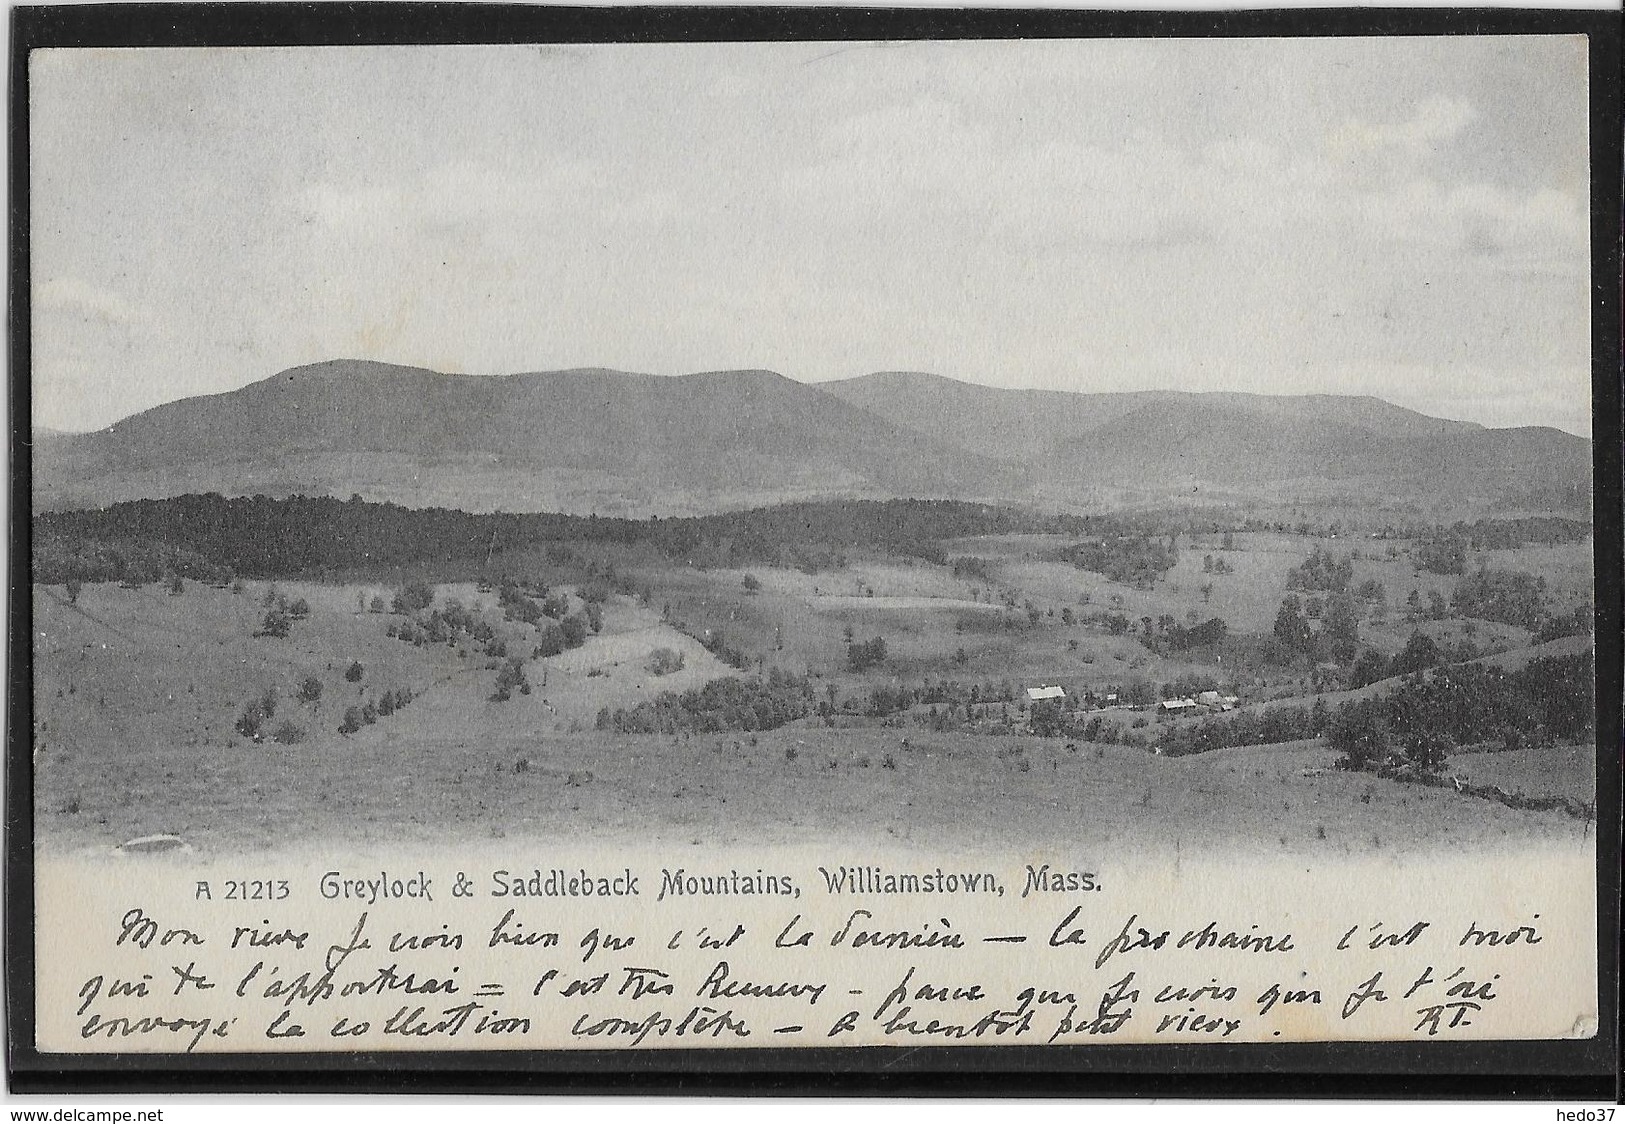 A 21213 Greylock & Saddleback Mountains, Williamstown, Mass.
Mon vieux Je crois bien que c'est la dernière — la prochaine c'est moi
qui te l'apporterai = C'est très — parce que Je crois que Je t'ai
envoyé la collection complète — A bientôt petit vieux. RT.
www.delcampe.net
hedo37